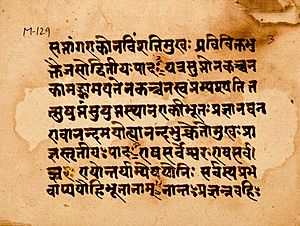 M-129
3
सप्तांगएकोनविंशतिमुखः प्रविविक्तभु
क्तैजसोद्वितीयः पादः यत्रसुप्तोनकंचन
कामंकामयतेनकंचनस्वप्नंपश्यतित
त्सुषुप्तंसुषुप्तस्थानएकीभूतःप्रज्ञानघन
एवानन्दमयोह्यानन्दभुक्चेतोमुखःप्रा
ज्ञस्तृतीयःपादः एषसर्वेश्वरःएषसर्व
ज्ञ एषोन्तर्याम्येषयोनिः सर्वस्यप्रभ
वाप्ययौहिभूतानाम् नान्तःप्रज्ञंनबहिः